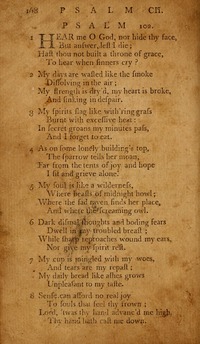 168 PSALM CII.
PSALM 102.
1 HEAR me O God, nor hide thy face,
But answer, lest I die;
Hast thou not built a throne of grace,
To hear when sinners cry?
2 My days are wasted like the smoke
Dissolving in the air;
My strength is dry'd, my heart is broke,
And sinking in despair.
3 My spirits flag like with'ring grass
Burnt with excessive heat:
In secret groans my minutes pass,
And I forget to eat.
4 As on some lonely building's top,
The sparrow tells her moan,
Far from the tents of joy and hope
I sit and grieve alone.
5 My soul is like a wilderness,
Where beasts of midnight howl;
Where the sad raven finds her place,
And where the screaming owl.
6 Dark dismal thoughts and boding fears
Dwell in my troubled breast;
While sharp reproaches wound my ears,
Nor give my spirit rest.
7 My cup is mingled with my woes,
And tears are my repast;
My daily bread like ashes grows
Unpleasant to my taste.
8 Sense can afford no real joy
To souls that feel thy frown;
Lord, 'twas thy hand advanc'd me high,
Thy hand hath cast me down.